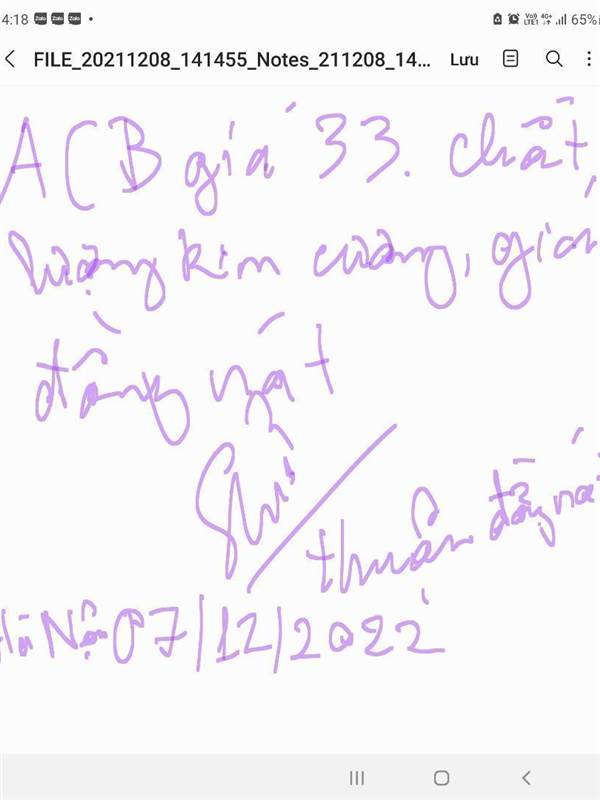 4:18 Zalo Zalo Zalo • Vo) LTE1 4G+ 65%
FILE_20211208_141455_Notes_211208_14... Lưu
ACB giá 33. Chất
lượng kim cương, giá
đồng nát
thuận đồng ná
Hà Nội 07/12/2022